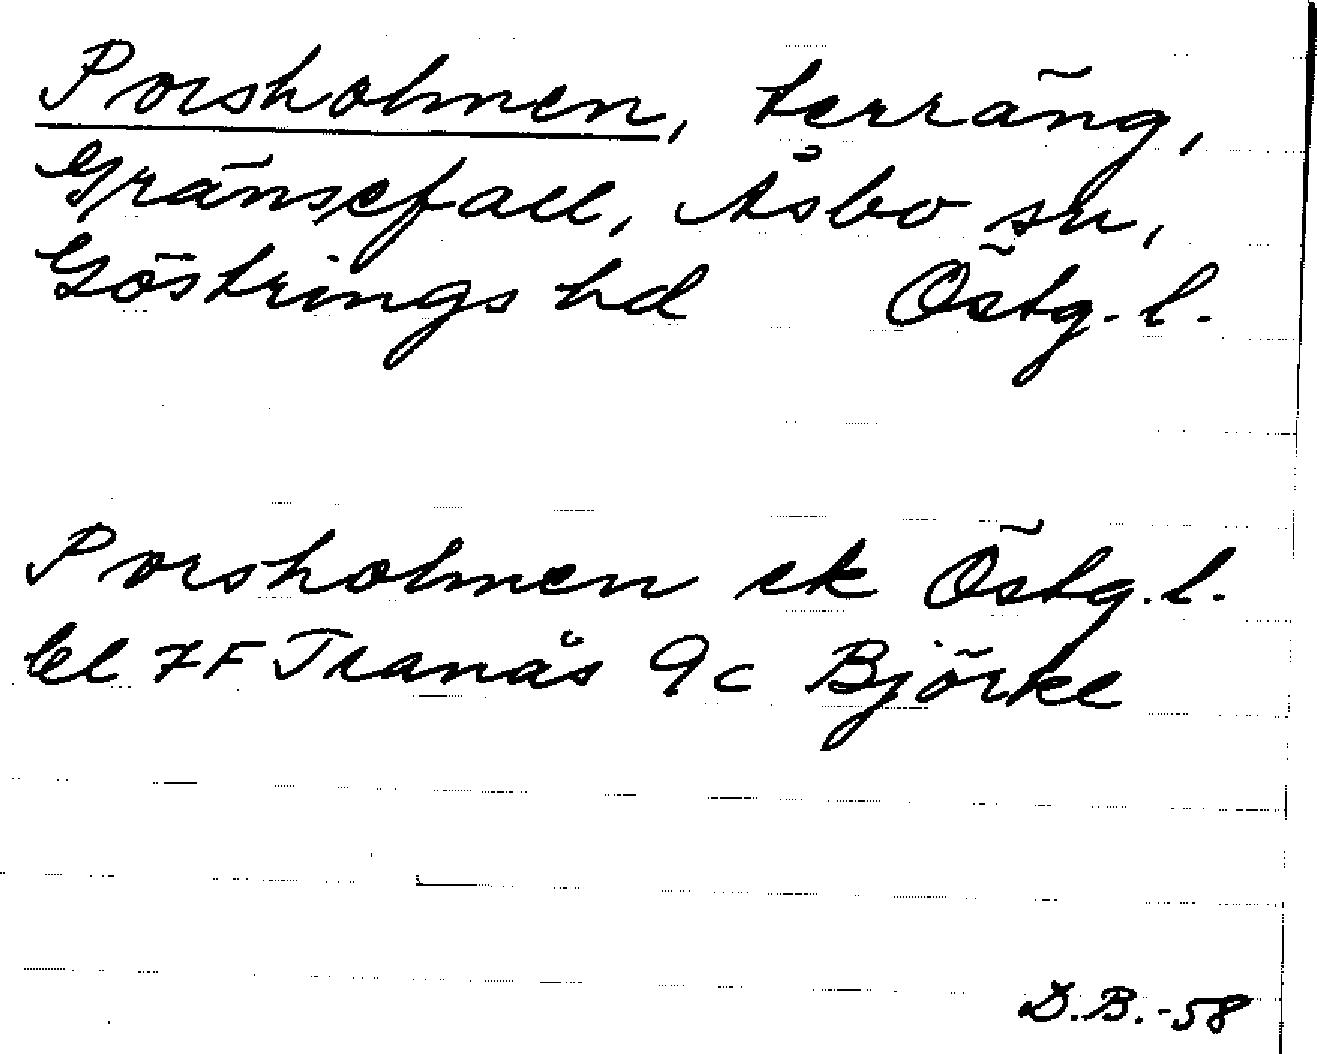 Porsholmen, terräng,
Gränsefall, Åsbo sn,
Göstrings hd Östg. l.
Porsholmen ek Östg. l.
bl 7F Tranås 9c Björke
D.B.-58